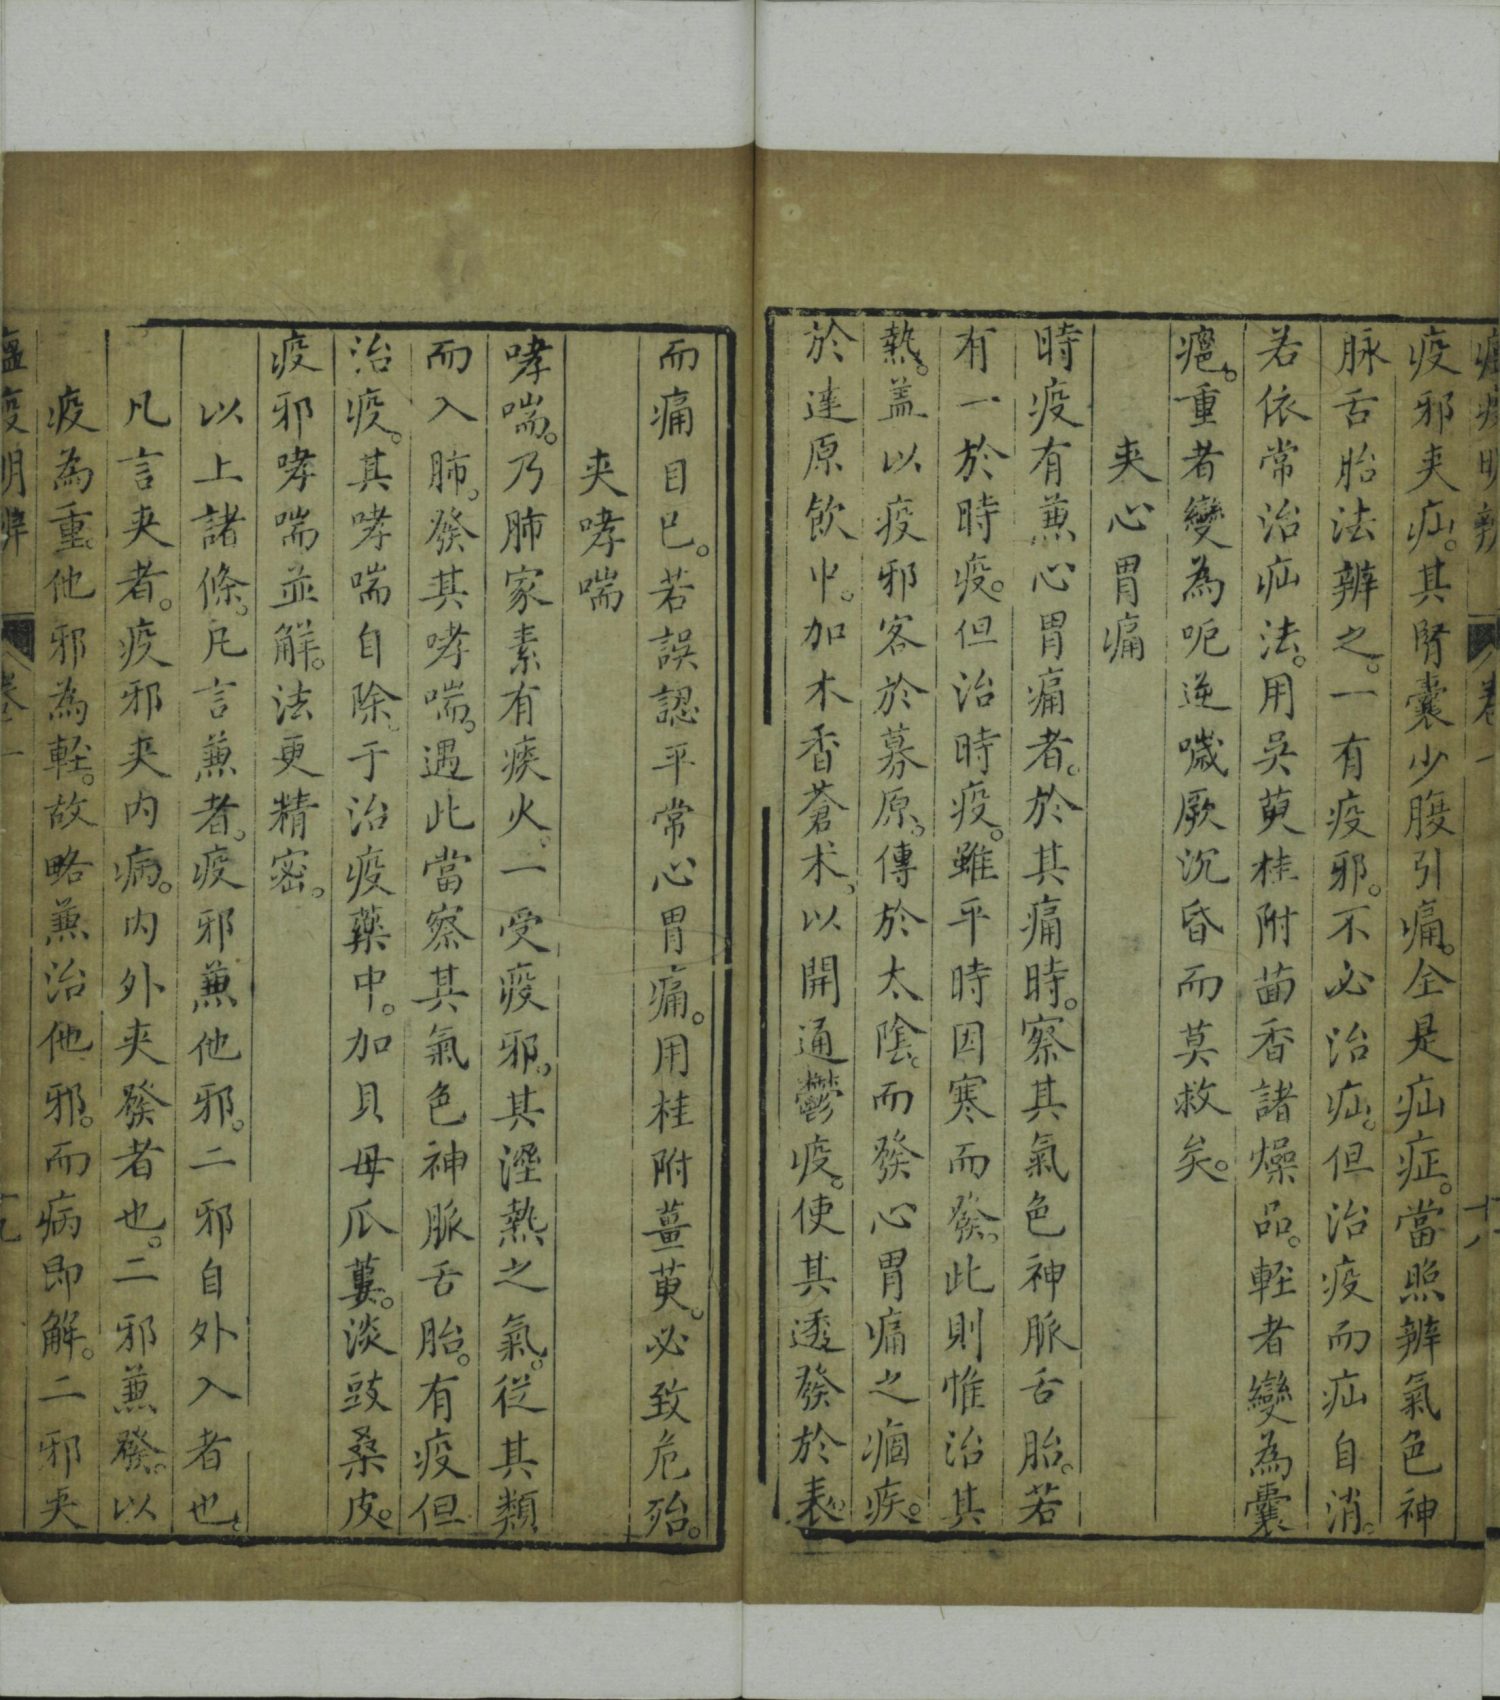 瘟疫明辨 卷一 十八
疫邪夾疝。其腎囊少腹引痛。全是疝症。當照辨氣色神
脉舌胎法辨之。一有疫邪。不必治疝。但治疫而疝自消。
若依常治疝法。用吳萸桂附茴香諸燥品。輕者變為囊
癰。重者變為呃逆噦厥沉昏而莫救矣。
夾心胃痛
時疫有兼心胃痛者。於其痛時。察其氣色神脈舌胎。若
有一於時疫。但治時疫。雖平時因寒而發。此則惟治其
熱。盖以疫邪客於募原。傳於太陰。而發心胃痛之痼疾。
於達原飲中。加木香蒼术。以開通鬱疫。使其透發於表。
而痛自已。若誤認平常心胃痛。用桂附薑萸。必致危殆。
夾哮喘
哮喘。乃肺家素有痰火。一受疫邪。其溼熱之氣。從其類
而入肺。發其哮喘。遇此當察其氣色神脈舌胎。有疫但
治疫。其哮喘自除。于治疫藥中。加貝母瓜蔞。淡豉桑皮。
疫邪哮喘並解。法更精密。
以上諸條。凡言兼者。疫邪兼他邪。二邪自外入者也。
凡言夾者。疫邪夾內病。內外夾發者也。二邪兼發。以
疫為重。他邪為輕。故略兼治他邪。而病即解。二邪夾
瘟疫明辨 卷一 十九